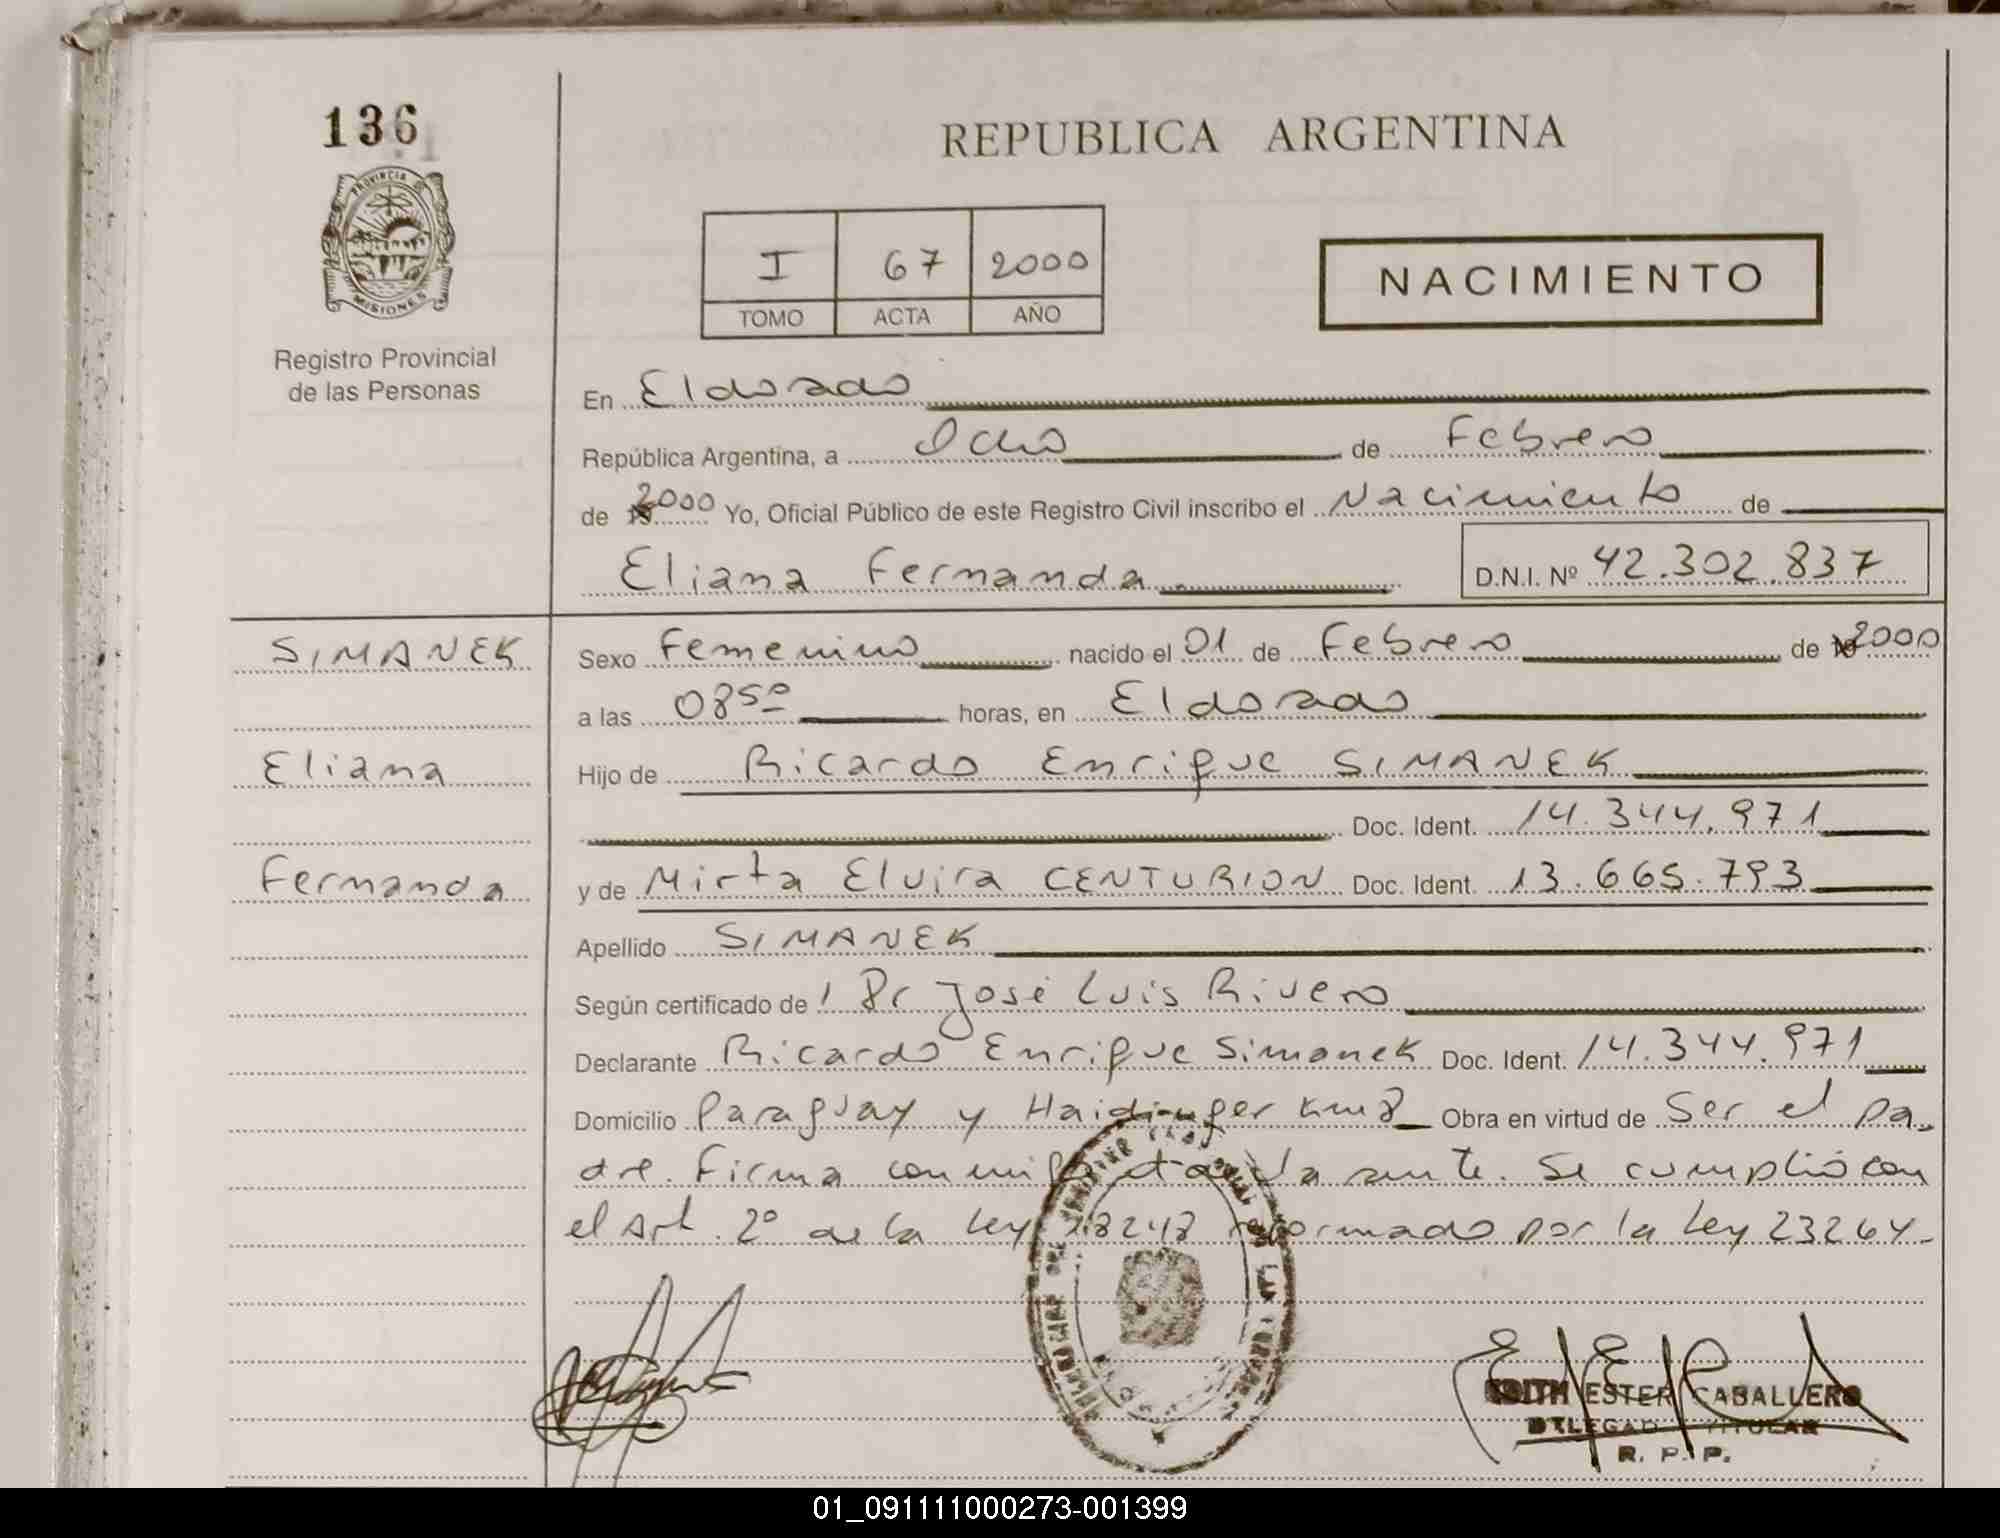 136
PROVINCIA DE
MISIONES
Registro Provincial
de las Personas
REPUBLICA ARGENTINA
I 67 2000
TOMO ACTA AÑO
NACIMIENTO
En Eldorado
República Argentina, a Ocho de Febrero
de 2000 Yo, Oficial Público de este Registro Civil inscribo el Nacimiento de
Eliana Fernanda D.N.I. Nº 42.302.837
SIMANEK Sexo Femenino nacido el 01 de Febrero de 2000
a las 0850 horas, en Eldorado
Eliana Hijo de Ricardo Enrique SIMANEK
Doc. Ident. 14.344.971
Fernanda y de Mirta Elvira CENTURION Doc. Ident. 13.665.793
Apellido SIMANEK
Según certificado de Dr José Luis Rivero
Declarante Ricardo Enrique Simanek Doc. Ident. 14.344.971
Domicilio Paraguay y Haidinger km 8 Obra en virtud de Ser el pa-
dre. Firma conmigo el declarante. Se cumplió con
el Art. 2º de la Ley 18248 reformado por la Ley 23264.
EDITH ESTER CABALLERO
DELEGADO TITULAR
R. P. P.
01_091111000273-001399